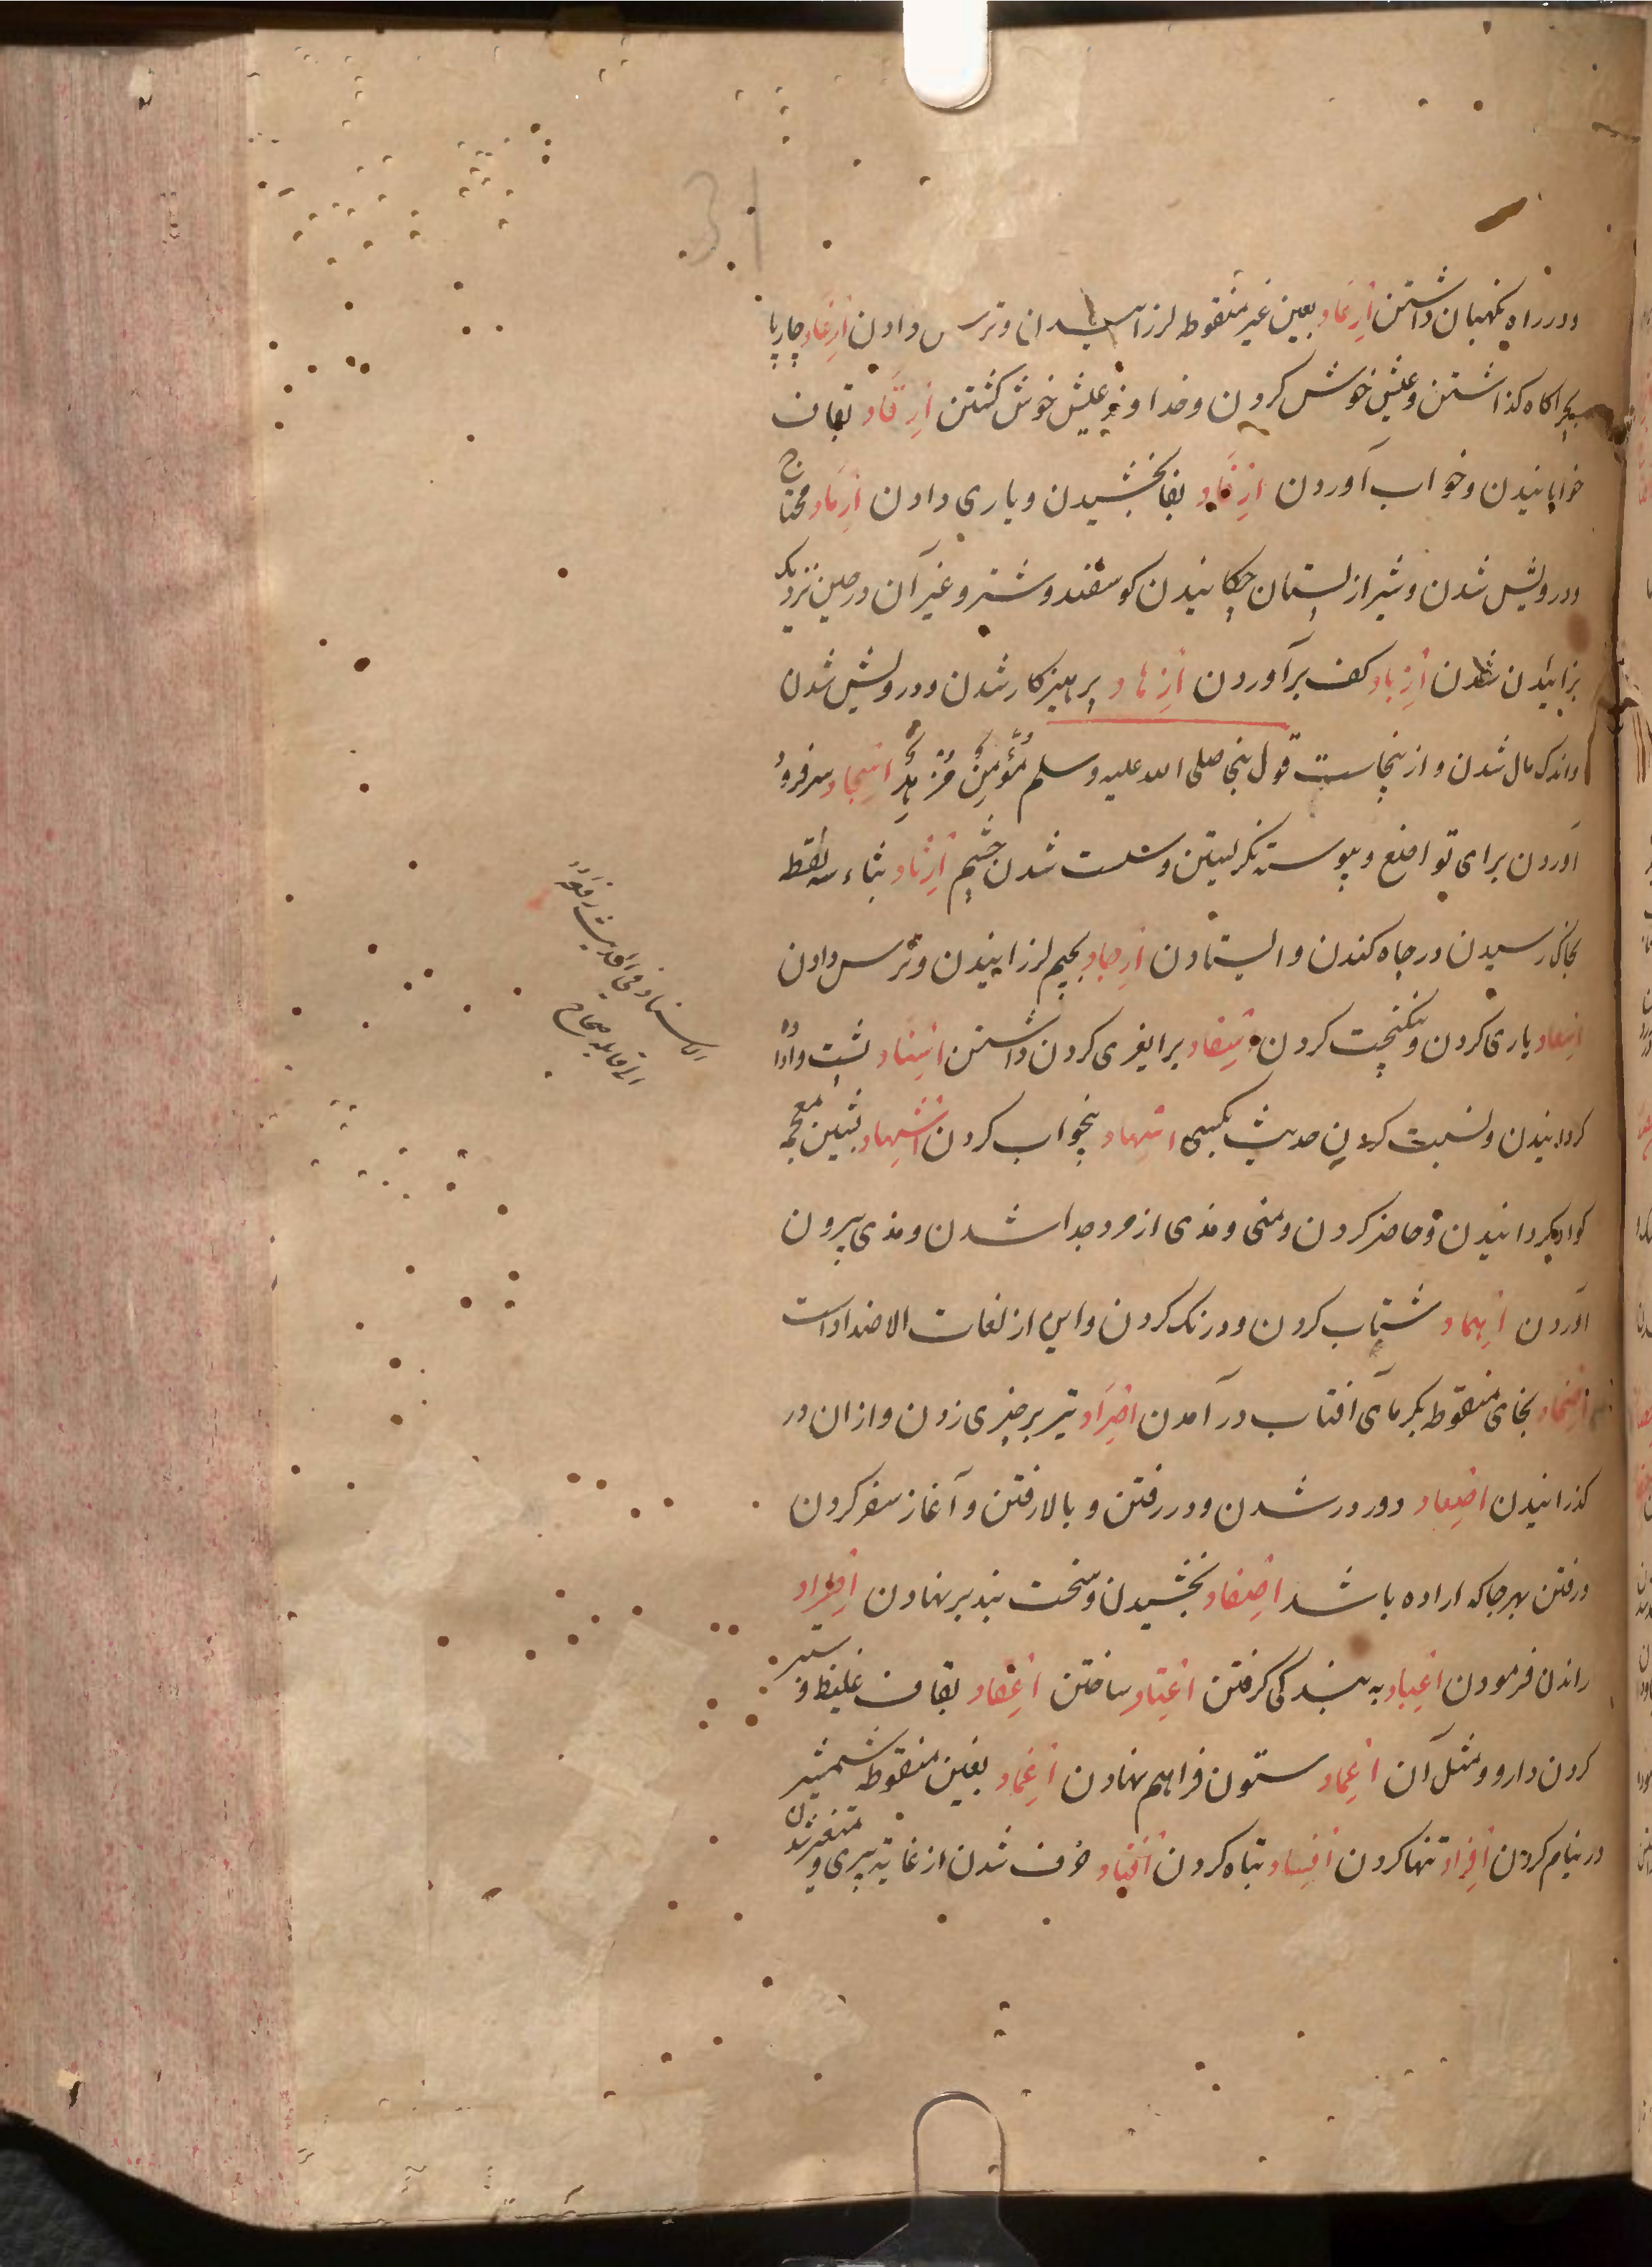 31
ودر راه نکهبان داشتن اِرْعاد بعین غیر منقوطه لرزانیدن وترس دادن اِرْغاد چارپا
بچراکاه کذاشتن وعیش خوش کردن وخداوند عیش خوش کشتن اِرْقاد بقاف
خوابانیدن وخواب آوردن اِرْفاد بفا بخشیدن ویاری دادن اِرْماد محتاج
ودرویش شدن وشیر از پستان چکانیدن کوسفند وشتر وغیر آن در حین نزدیک
بزائیدن شدن اِزْباد کف برآوردن اِزْهاد پرهیزکار شدن ودرویش شدن
واندک مال شدن وازینجاست قول صلی الله علیه وسلم مُؤْمِنٌ مُزْهِدٌ اِسْجاد سرفرود
آوردن برای تواضع وپیوسته نکریستن وسست شدن چشم اِرْثاد بثاء سه نقطه
بخاک رسیدن در چاه کندن وایستادن اِرْجاد بجیم لرزانیدن وترس دادن
اِسْعاد یاری کردن ونیکبخت کردن برا داشتن اِسْناد پشت واداده
کردانیدن ونسبت کردن حدیث بکسی اِسْهاد بیخواب کردن اِشْهاد بشین معجمه
کواه کردانیدن وحاضر کردن ومنی ومذی از مرد جدا شدن ومذی بیرون
آوردن اِهْماد شتاب کردن ودرنک کردن واین از لغات الاضداد است
بخای منقوطه بکرمای آفتاب درآمدن اِصْراد تیر بر چیزی زدن وازان در
کذرانیدن اِصْعاد دور در شدن ودر رفتن وبالا رفتن وآغاز سفر کردن
ورفتن بهر جا که اراده باشد اِصْفاد بخشیدن وسخت بند بر نهادن اِطْراد
راندن فرمودن اِعْباد به بندکی کرفتن اِعْتاد ساختن اِعْقاد بقاف غلیظ و ستبر
کردن دارو ومثل آن اِعْماد ستون فراهم نهادن اِغْماد بغین منقوطه شمشیر
در نیام کردن اِفْراد تنها کردن اِفْساد تباه کردن اِفْناد خرف شدن از غایة پیری و متغیر شدن